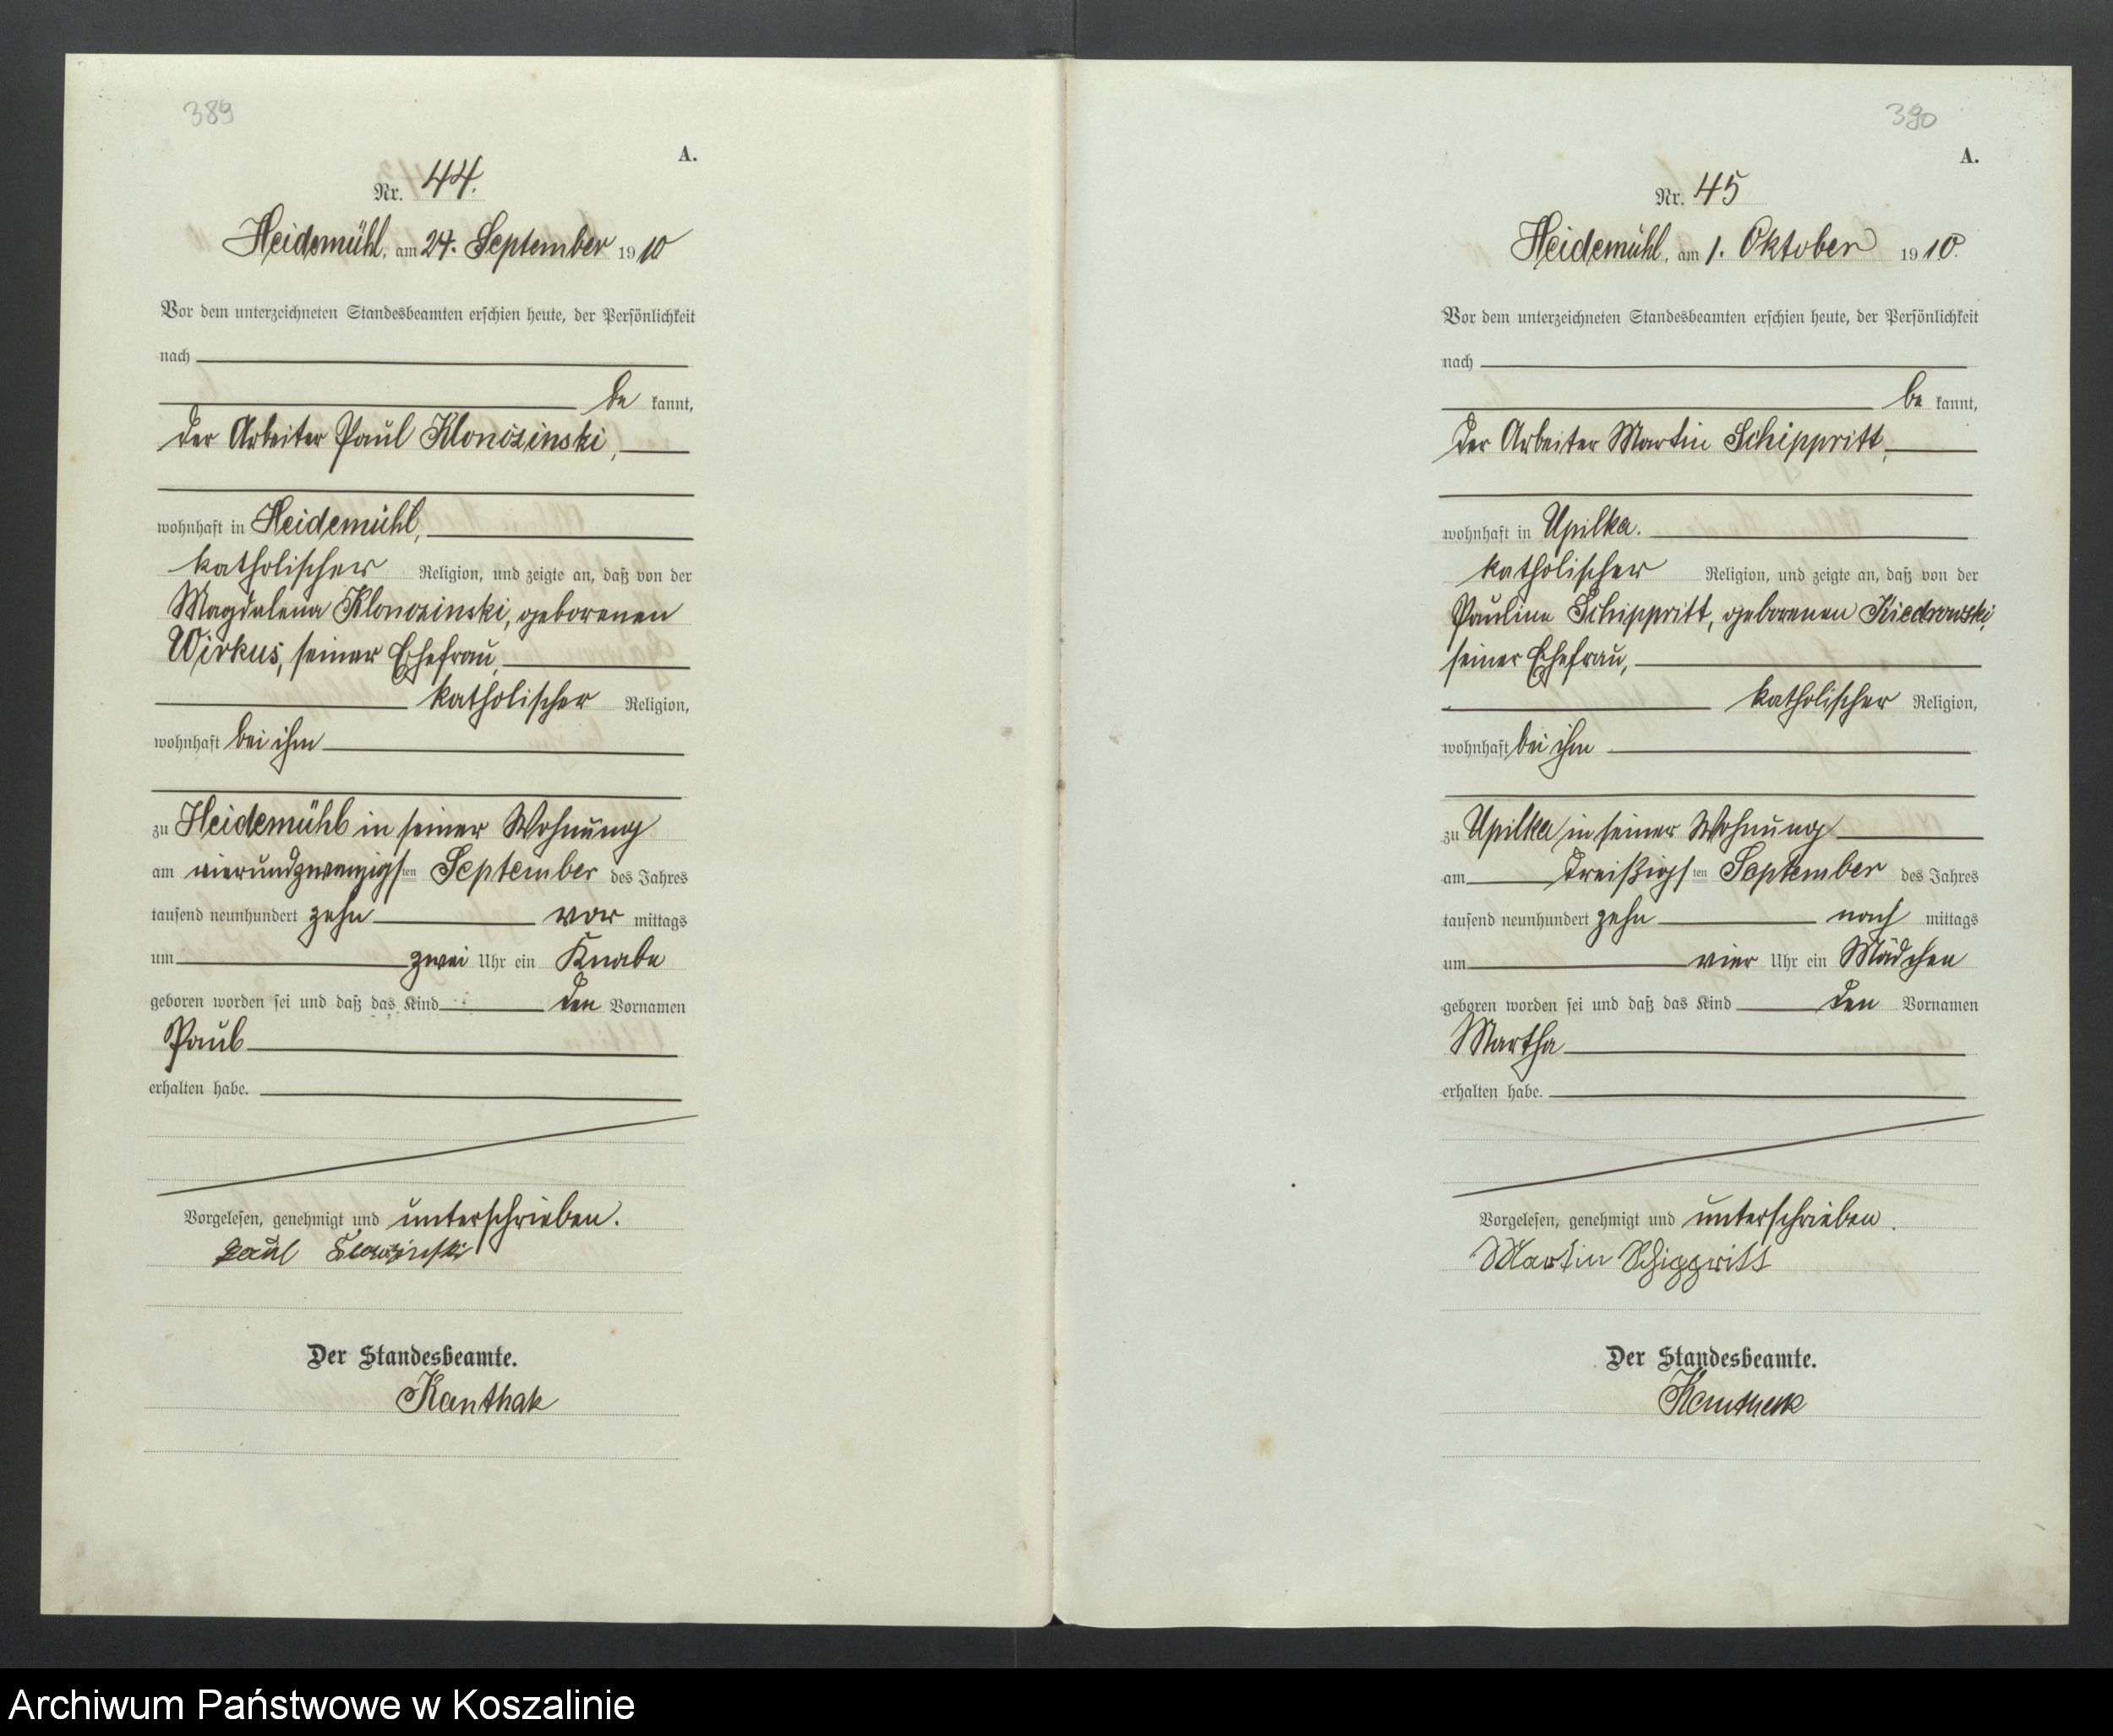 389
A.
Nr. 44.
Heidemühl, am 24. September 1910
Vor dem unterzeichneten Standesbeamten erschien heute, der Persönlichkeit
nach
be kannt,
der Arbeiter Paul Klonczinski,
wohnhaft in Heidemühl,
katholischer Religion, und zeigte an, daß von der
Magdalena Klonczinski, geborenen
Wirkus, seiner Ehefrau,
katholischer Religion,
wohnhaft bei ihm
zu Heidemühl in seiner Wohnung
am vierundzwanzigsten September des Jahres
tausend neunhundert zehn vor mittags
um zwei Uhr ein Knabe
geboren worden sei und daß das Kind den Vornamen
Paul
erhalten habe.
Vorgelesen, genehmigt und unterschrieben.
Paul
Der Standesbeamte.
Kanthak
390
A.
Nr. 45
Heidemühl, am 1. Oktober 1910.
Vor dem unterzeichneten Standesbeamten erschien heute, der Persönlichkeit
nach
be kannt,
der Arbeiter Martin Schippritt,
wohnhaft in Upilka.
katholischer Religion, und zeigte an, daß von der
Pauline Schippritt, geborenen Kiedrowski,
seiner Ehefrau,
katholischer Religion,
wohnhaft bei ihm
zu Upilka in seiner Wohnung
am dreißigsten September des Jahres
tausend neunhundert zehn nach mittags
um vier Uhr ein Mädchen
geboren worden sei und daß das Kind den Vornamen
Martha
erhalten habe.
Vorgelesen, genehmigt und unterschrieben.
Martin Schippritt
Der Standesbeamte.
Kanthak
Archiwum Państwowe w Koszalinie